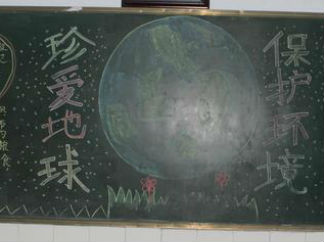 珍爱地球
保护环境